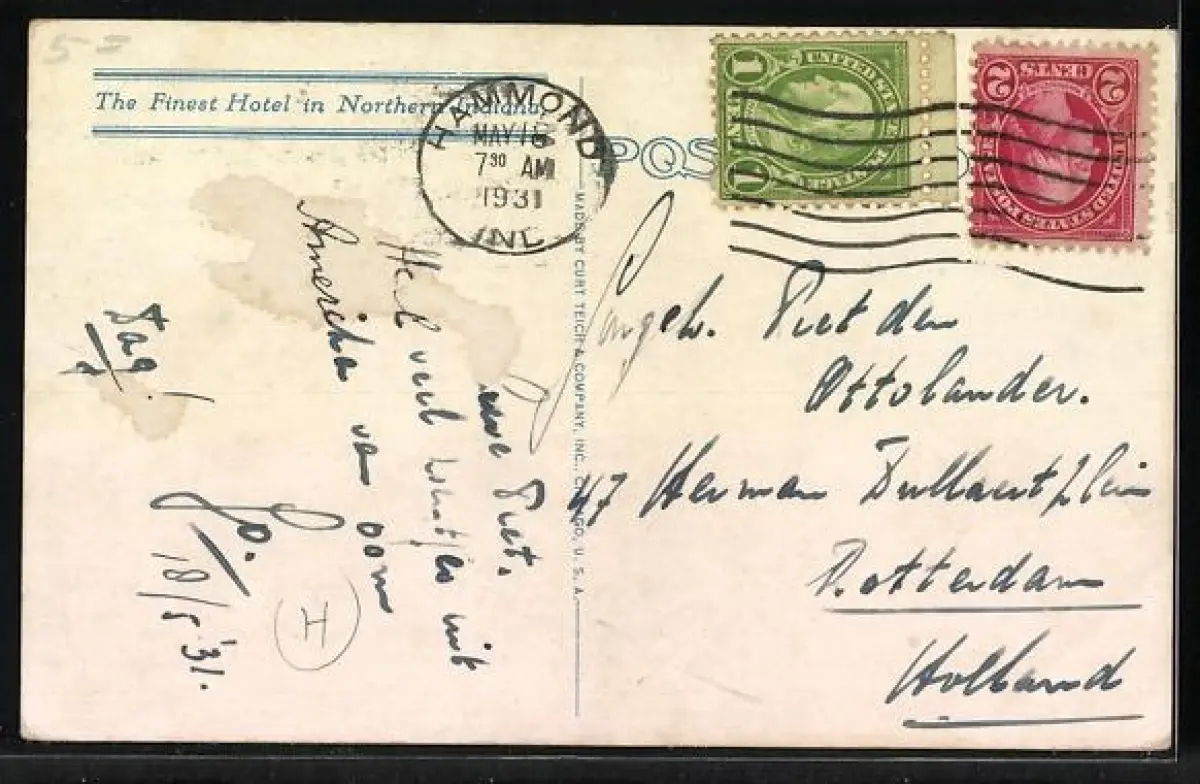 5=
The Finest Hotel in Northern Indiana,
HAMMOND
MAY 18
7 30 AM
1931
IND.
POS
1 1
UNITED STATES
2 CENTS 2
UNITED STATES POSTAGE
MADE BY CURT TEICH & COMPANY, INC., CHICAGO, U. S. A.
Piet.
Heel veel uit
Amerika van oom
Jo.
Dag!
18/5 '31.
I
Jongeh. Piet den
Ottolander.
47 Herman Bullaertplein
Rotterdam
Holland